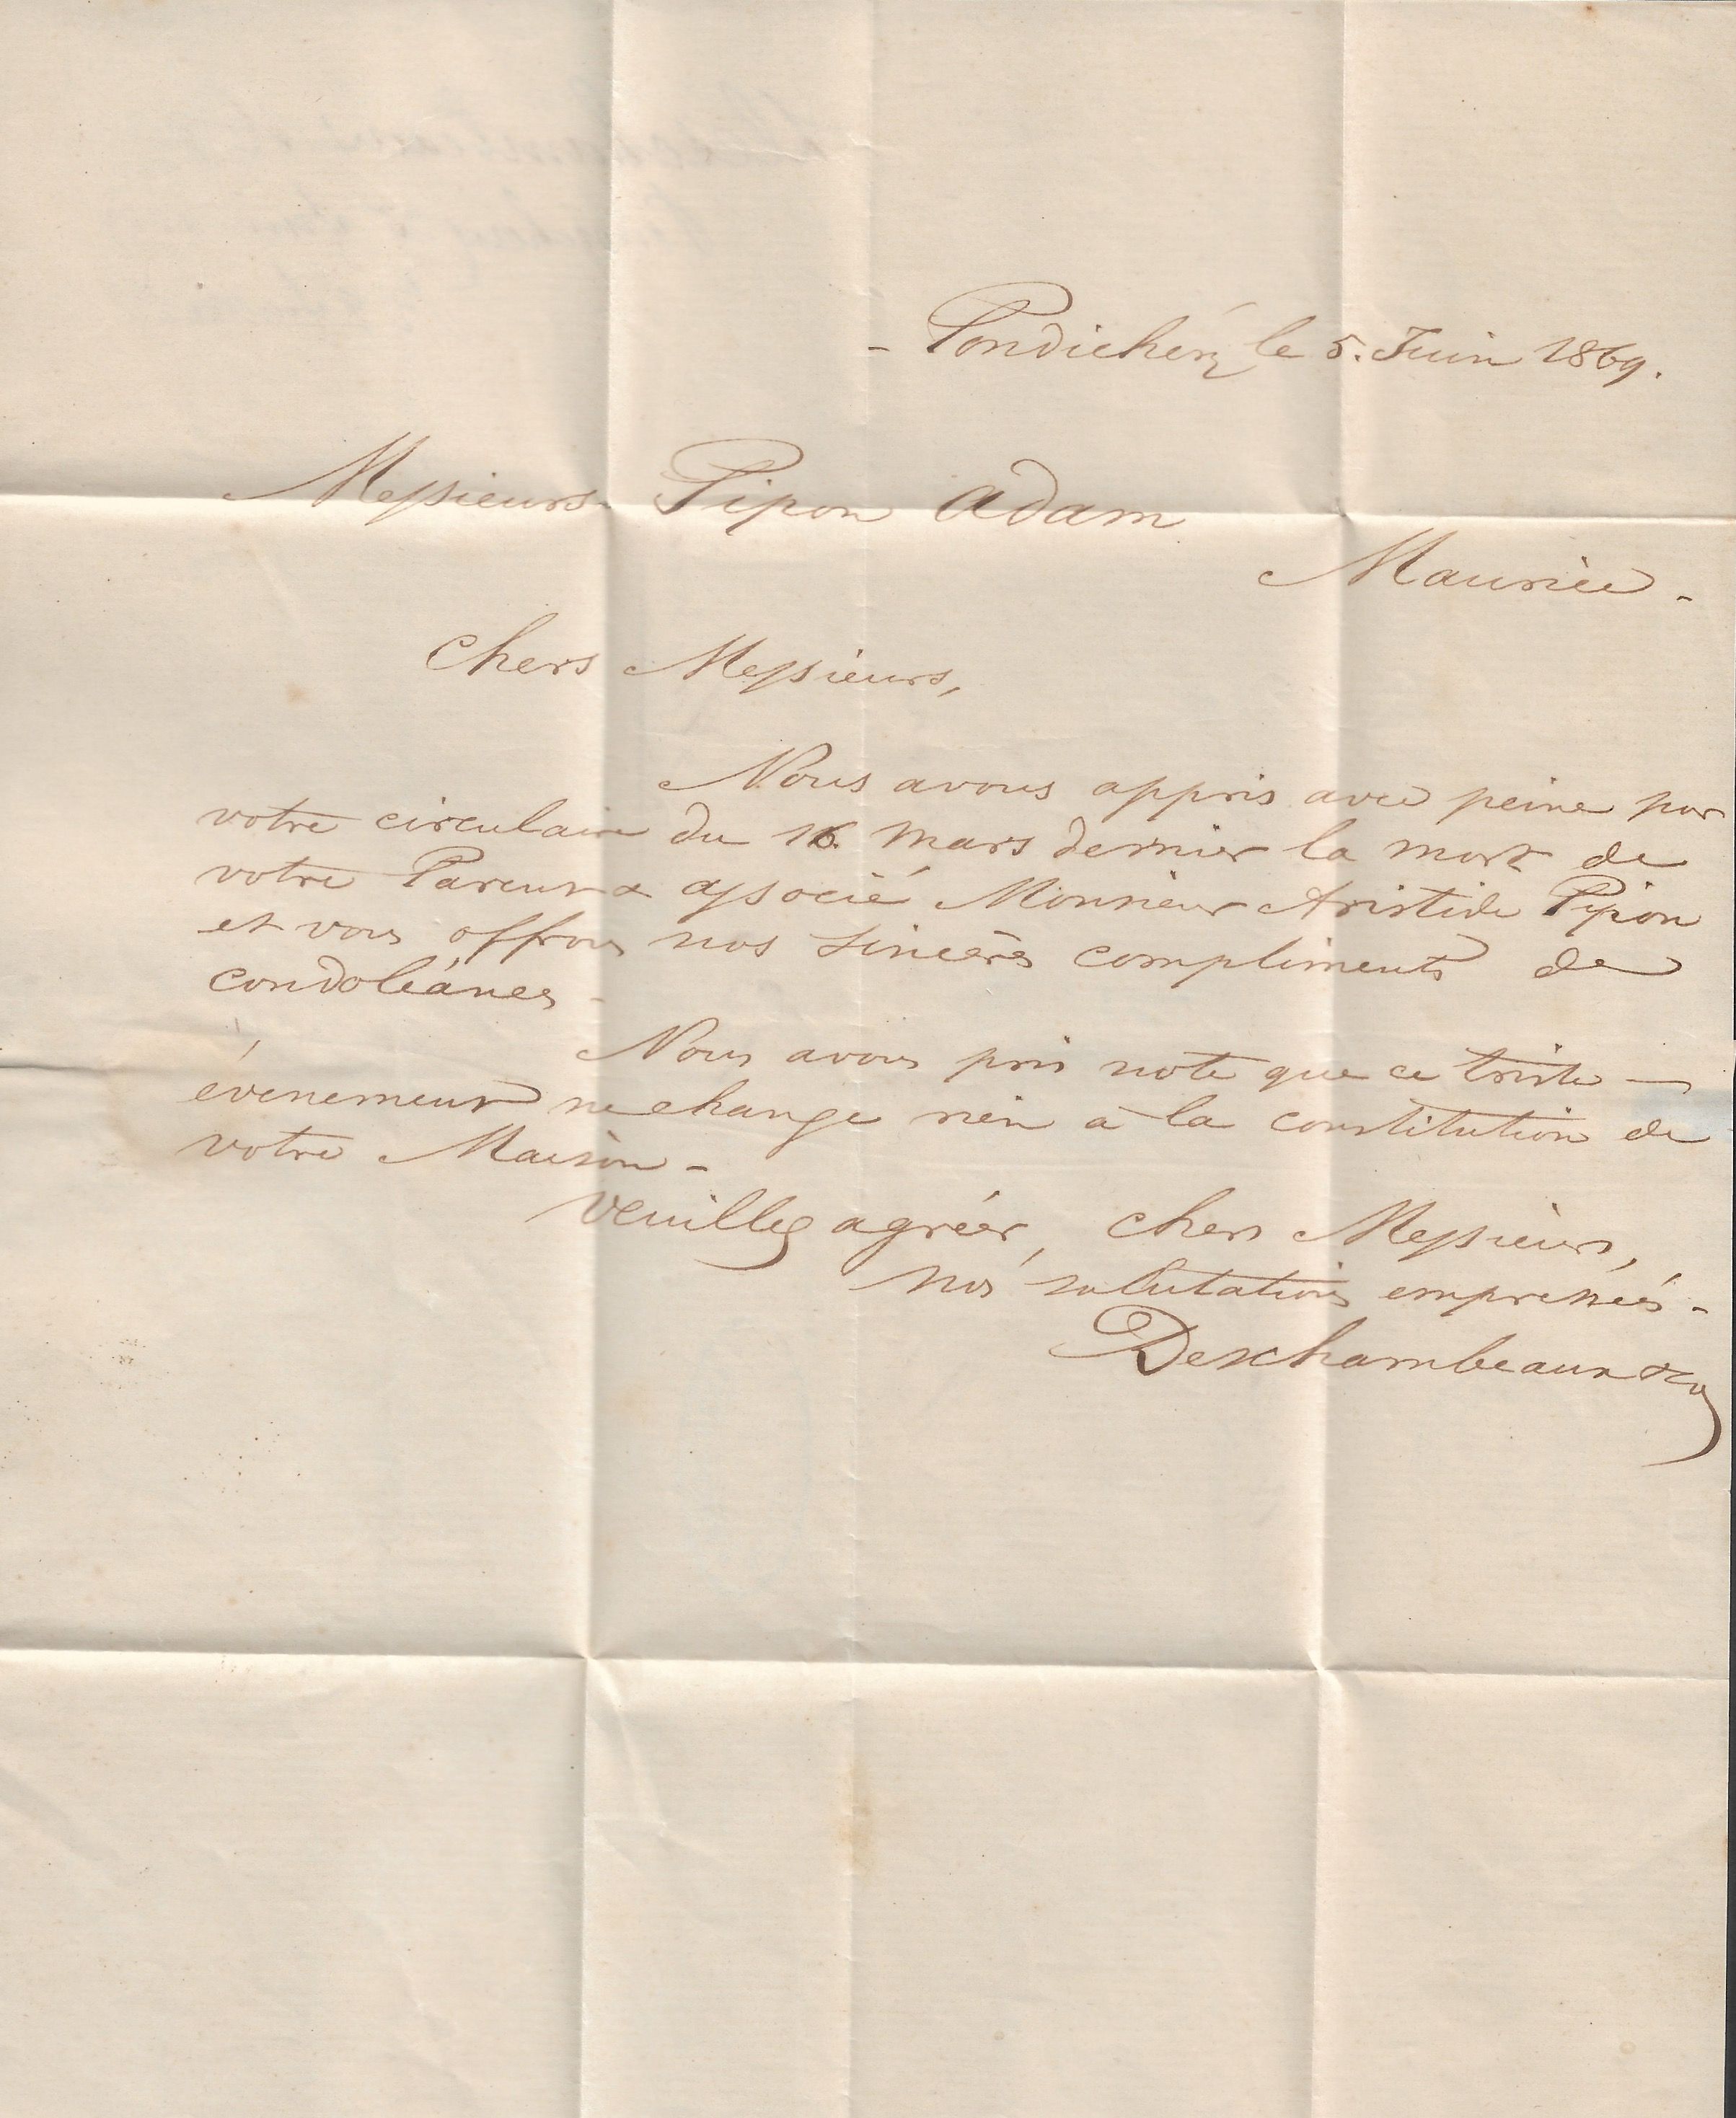 - Pondichéry le 5. Juin 1869.
Messieurs Pipon Adam
Maurice -
Chers Messieurs,
Nous avons appris avec peine par
votre circulaire du 16 Mars dernier la mort de
votre Parent & associé Monsieur Aristide Pipon
et vous offrons nos sincères compliments de
condoléances -
Nous avons pris note que ce triste —
évenement ne change rien à la constitution de
votre Maison -
Veuillez agréer, Chers Messieurs,
nos salutations empressées -
Deschambeaux & Co